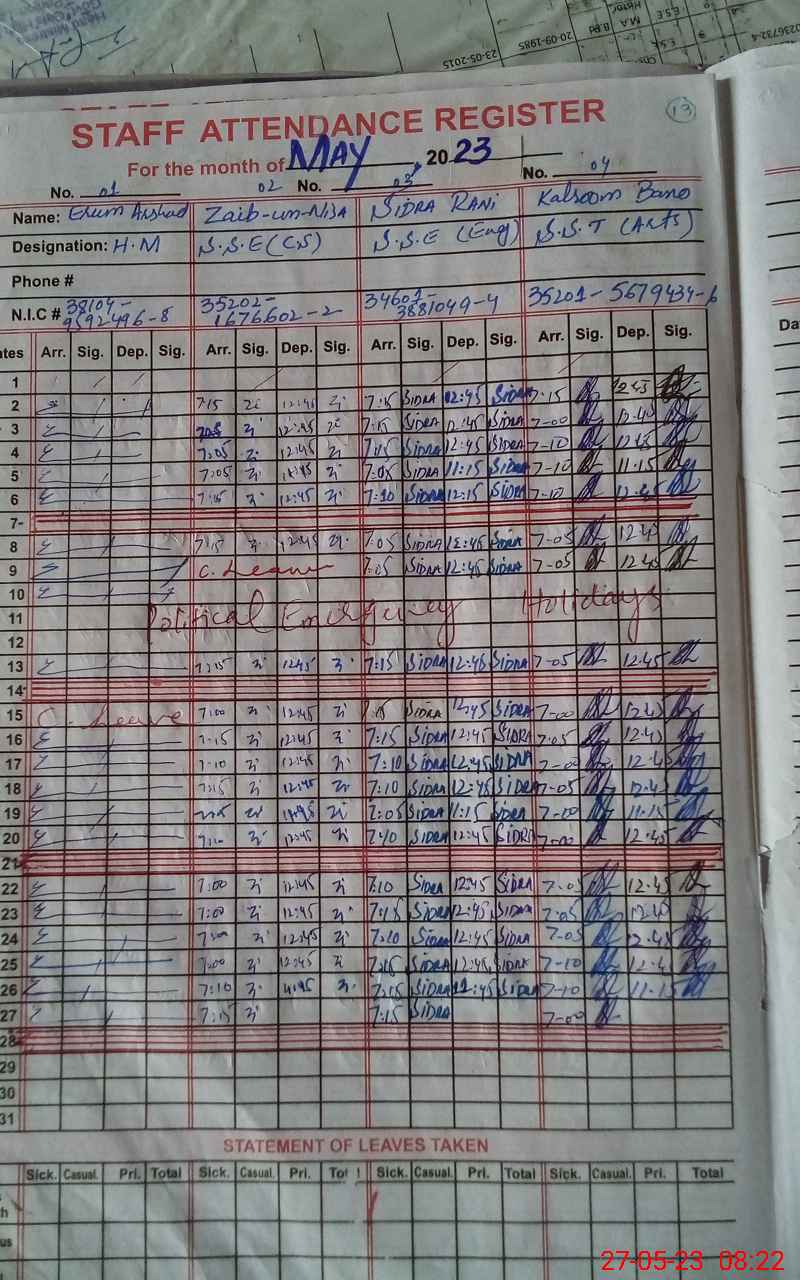 23-05-2015
20-09-1985
B.Ed
M.A
E.S.E
0236732-4
13
STAFF ATTENDANCE REGISTER
For the month of MAY, 2023
No. 01 02 No. 03 No. 04
Name: Erum Arshad Zaib-un-Nisa SIDRA RANI Kalsoom Bano
Designation: H.M S.S.E (CS) S.S.E (Eng) S.S.T (Arts)
Phone #
N.I.C # 38104- 35202- 34601- 35201-5679434-6
9592496-8 1676602-2 3881049-4
ates Arr. Sig. Dep. Sig. Arr. Sig. Dep. Sig. Arr. Sig. Dep. Sig. Arr. Sig. Dep. Sig.
1
2 7:15 12:45 7:15 SIDRA 12:45 SIDRA 7-15
3 7:05 12:45 7:15 SIDRA 12:45 SIDRA 7-00 12.40
4 7:05 12:45 7:15 SIDRA 12:45 SIDRA 7-10
5 7:05 7:05 SIDRA 11:15 SIDRA 7-10 11.15
6 12:45 7:10 SIDRA 12:15 SIDRA 7-10 12.45
7-
8 7:15 12:45 7:05 SIDRA 12:45 SIDRA 7-05 12.45
9 C. Leave 7:05 SIDRA 12:45 SIDRA 7-05 12.45
10
11 Political Emergency Holidays
12
13 7:15 12:45 7:15 SIDRA 12:45 SIDRA 7-05 12.45
14
15 C. Leave 7:00 12:45 SIDRA 12:45 SIDRA 7-00 12.45
16 7:15 12:45 7:15 SIDRA 12:45 SIDRA 7.05 12.45
17 7:10 12:45 7:10 SIDRA 12:45 SIDRA 7-00 12.45
18 7:15 12:45 7:10 SIDRA 12:45 SIDRA 7-05 12.45
19 7:05 SIDRA 11:15 SIDRA 7-00 11.15
20 12:45 7:10 SIDRA 12:45 SIDRA 7-00 12.45
21
22 7:00 12:45 7:10 SIDRA 12:45 SIDRA 7-05 12.45
23 7:00 12:45 7:15 SIDRA 12:45 SIDRA 7-05 12.40
24 7:00 12:45 7:10 SIDRA 12:45 SIDRA 7-05 12.45
25 7:00 12:45 7:15 SIDRA 12:45 SIDRA 7-10
26 7:10 7:15 SIDRA SIDRA 7-10 11.15
27 7:15 7:15 SIDRA 7-00
28
29
30
31
STATEMENT OF LEAVES TAKEN
Sick. Casual. Pri. Total Sick. Casual. Pri. Sick. Casual. Pri. Total Sick. Casual. Pri. Total
h
us
Da
27-05-23 08:22